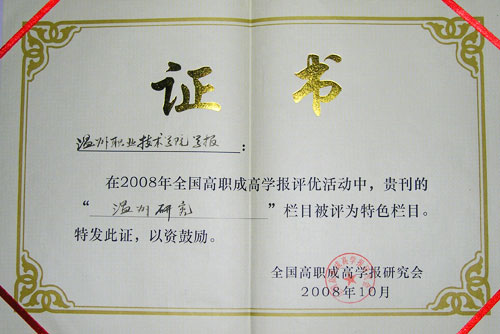 证 书
温州职业技术学院学报：
在2008年全国高职成高学报评优活动中，贵刊的
“温州研究”栏目被评为特色栏目。
特发此证，以资鼓励。
全国高职成高学报研究会
2008年10月